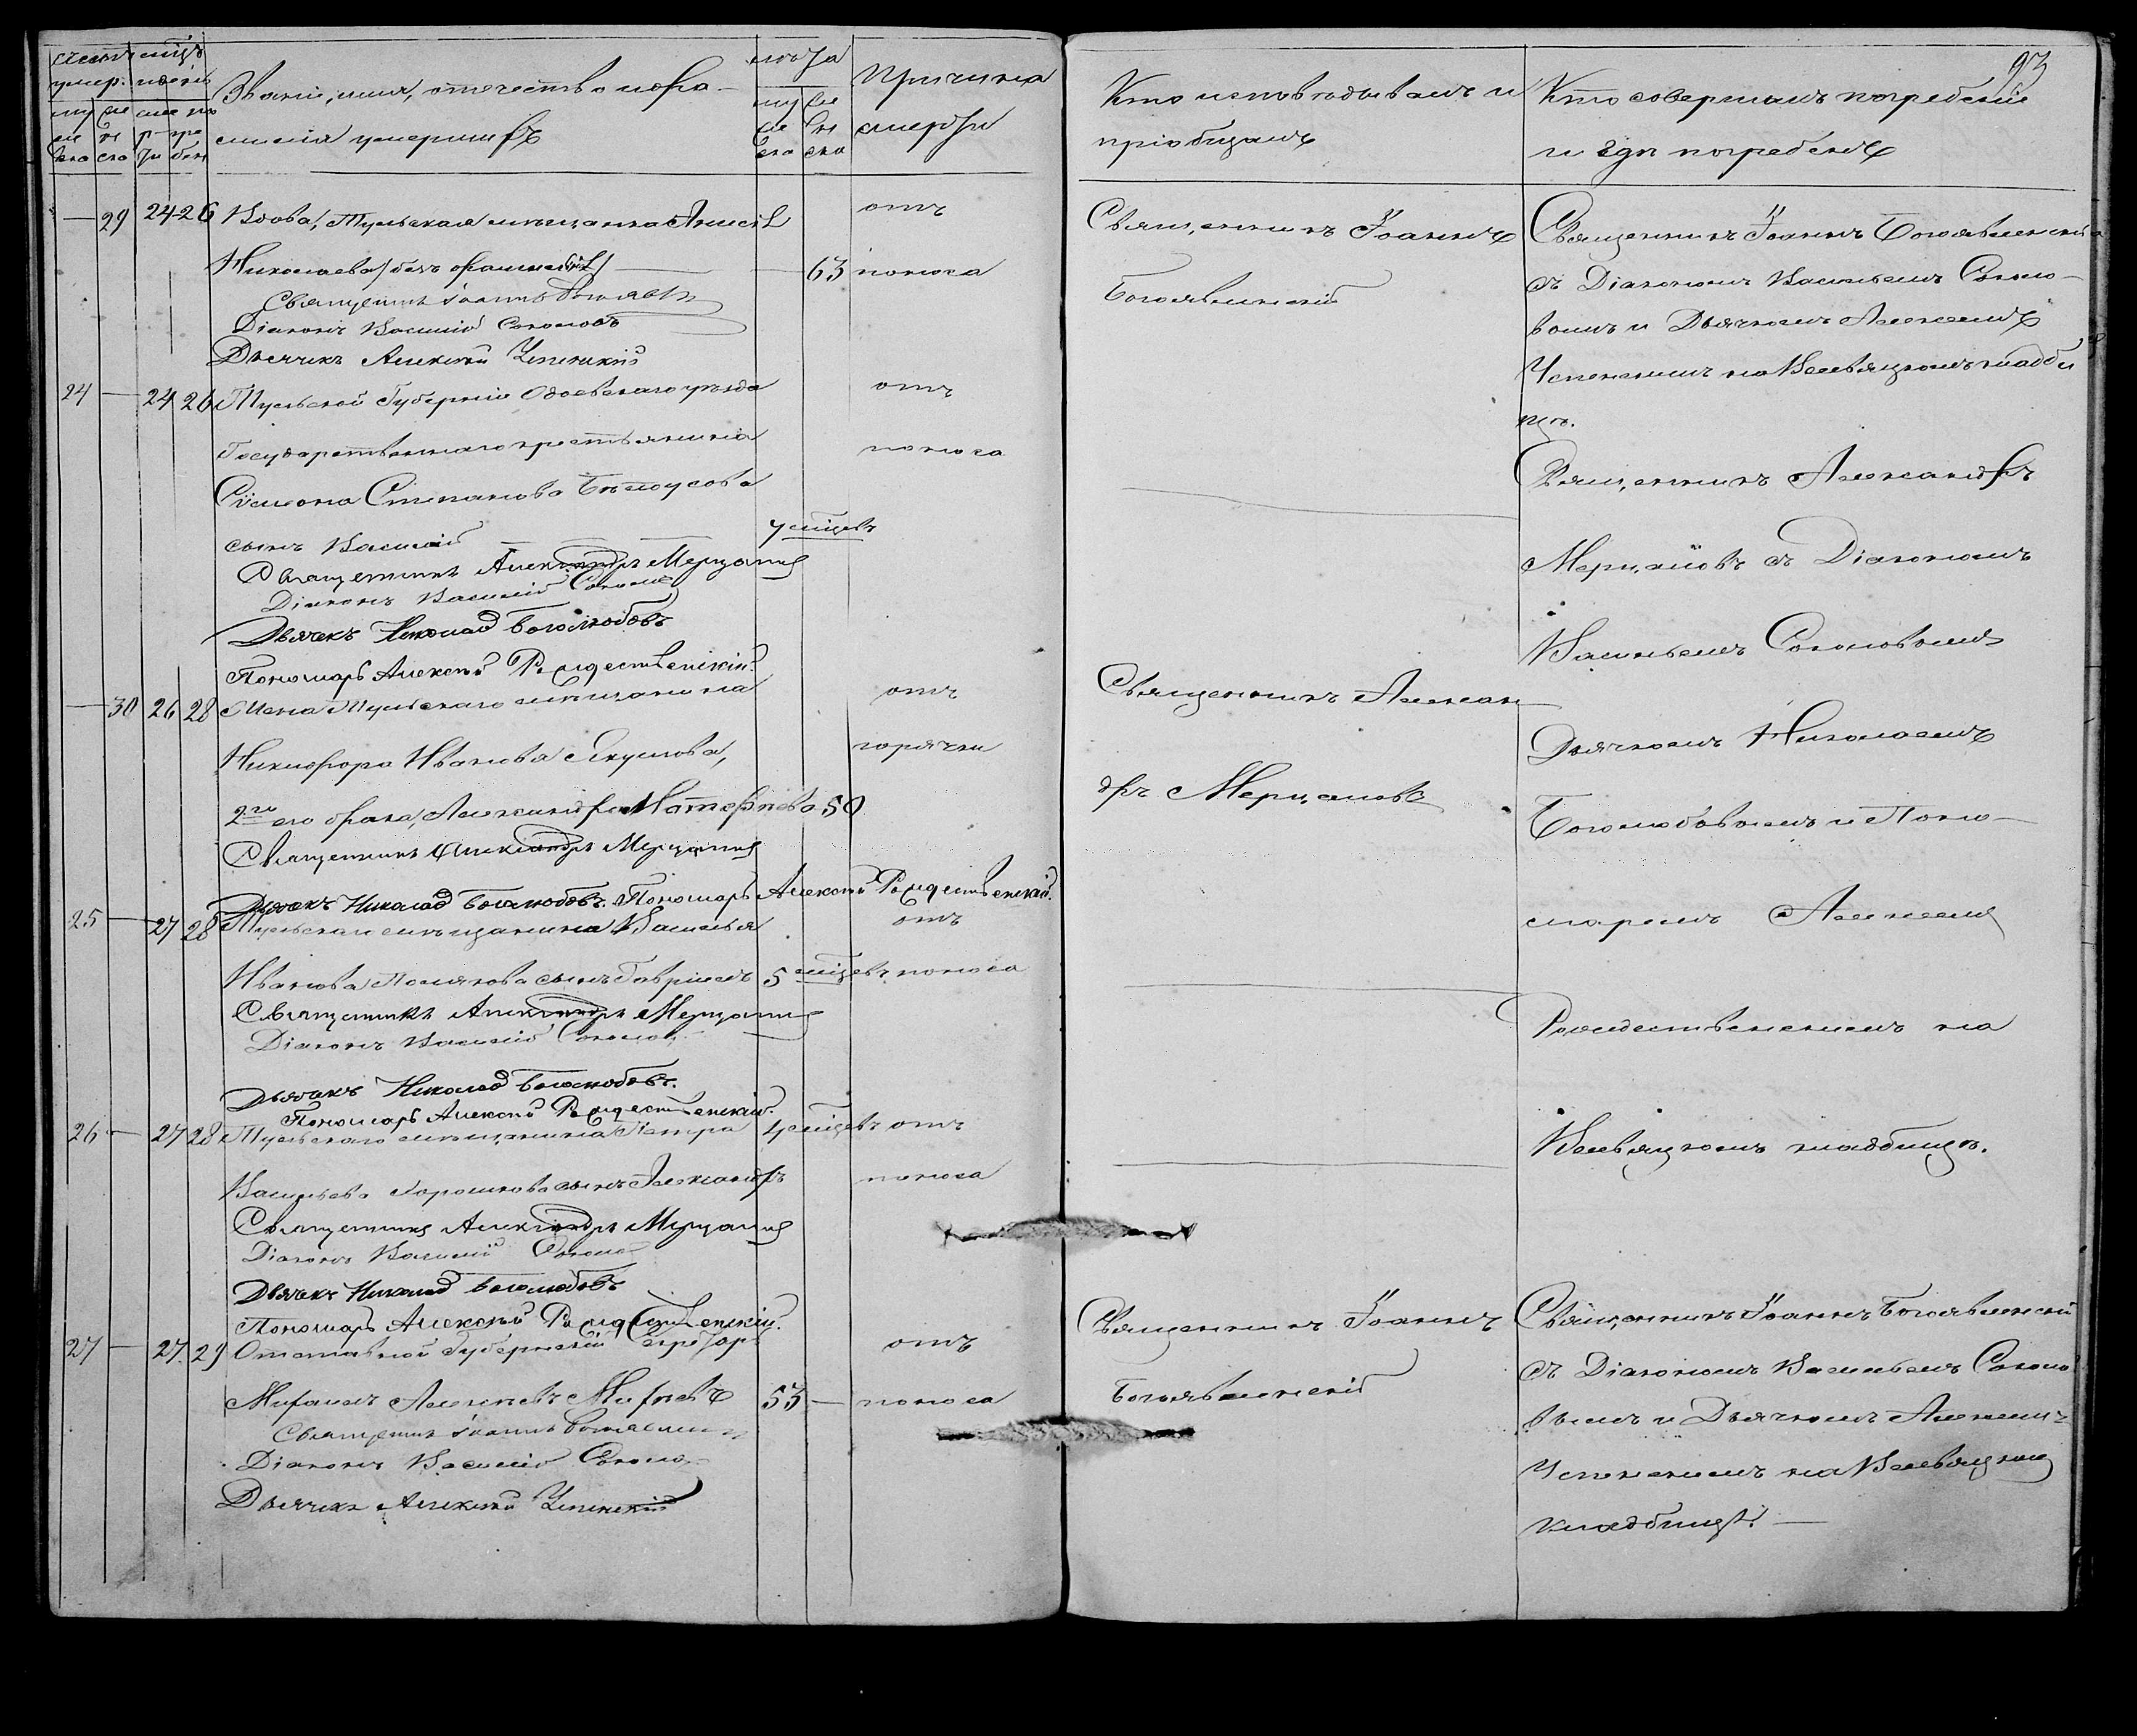 счетъ мѣсц.
умер. и день
му же сме по
же н р гре
ска ска ти бен
Званіе, имя, отчество и фа-
милія умершихъ
лѣта
му же
же н
ска ска
Причина
смерти
— 29 24 26 Вдова, Тульская мѣщанка
Николаева — 63
отъ
поноса
Священникъ Іоаннъ
Діаконъ Василій Соколовъ
Дьячекъ Алексѣй Успенскій
24 — 24 26 Тульской Губерніи Одоевскаго уѣзда
отъ
Государственнаго крестьянина
поноса
Сѵмеона Степанова Бѣлоусова
сынъ Василій — — — 7 мѣсцевъ
Священникъ Александръ Мерцаловъ
Діаконъ Василій Соколовъ
Дьячекъ Николай Боголюбовъ
Пономарь Алексѣй Рождественскій.
— 30 26 28 Жена Тульскаго мѣщанина
отъ
Никифора Иванова
горячки
2го его брака, Александра 50
Священникъ Александръ Мерцаловъ
Дьячекъ Николай Боголюбовъ. Пономарь Алексѣй Рождественскій.
25 — 27 28 Тульскаго мѣщанина Василья
отъ
Иванова Полякова сынъ Гавріилъ 5 мѣсцевъ поноса
Священникъ Александръ Мерцаловъ
Діаконъ Василій Соколовъ
Дьячекъ Николай Боголюбовъ.
Пономарь Алексѣй Рождественскій.
26 — 27 28 Тульскаго мѣщанина Петра 4 мѣсцевъ отъ
Васильева сынъ Александръ поноса
Священникъ Александръ Мерцаловъ
Діаконъ Василій Соколовъ
Дьячекъ Николай Боголюбовъ
Пономарь Алексѣй Рождественскій.
27 — 27 29 Отставной Губернскій
отъ
Алексѣевъ 53 — поноса
Священникъ Іоаннъ
Діаконъ Василій Соколовъ
Дьячекъ Алексѣй Успенскій
93
Кто исповѣдывалъ и
пріобщалъ
Кто совершалъ погребеніе
и гдѣ погребены
Священникъ Іоаннъ
Богоявленскій
Священникъ Іоаннъ Богоявленскій
съ Діакономъ Васильемъ Соколо-
вымъ и Дьячкомъ Алексѣемъ
Успенскимъ на кладби
щѣ.
Священникъ Александръ
Мерцаловъ съ Діакономъ
Васильемъ Соколовымъ
Священникъ Алексан
дръ Мерцаловъ
Дьячкомъ Николаемъ
Боголюбовымъ и Поно-
маремъ Алексѣемъ
Рождественскимъ на
кладбищѣ.
Священникъ Іоаннъ
Богоявленскій
Священникъ Іоаннъ Богоявленскій
съ Діакономъ Васильемъ Соколо
вымъ и Дьячкомъ Алексѣемъ
Успенскимъ на
кладбищѣ. —